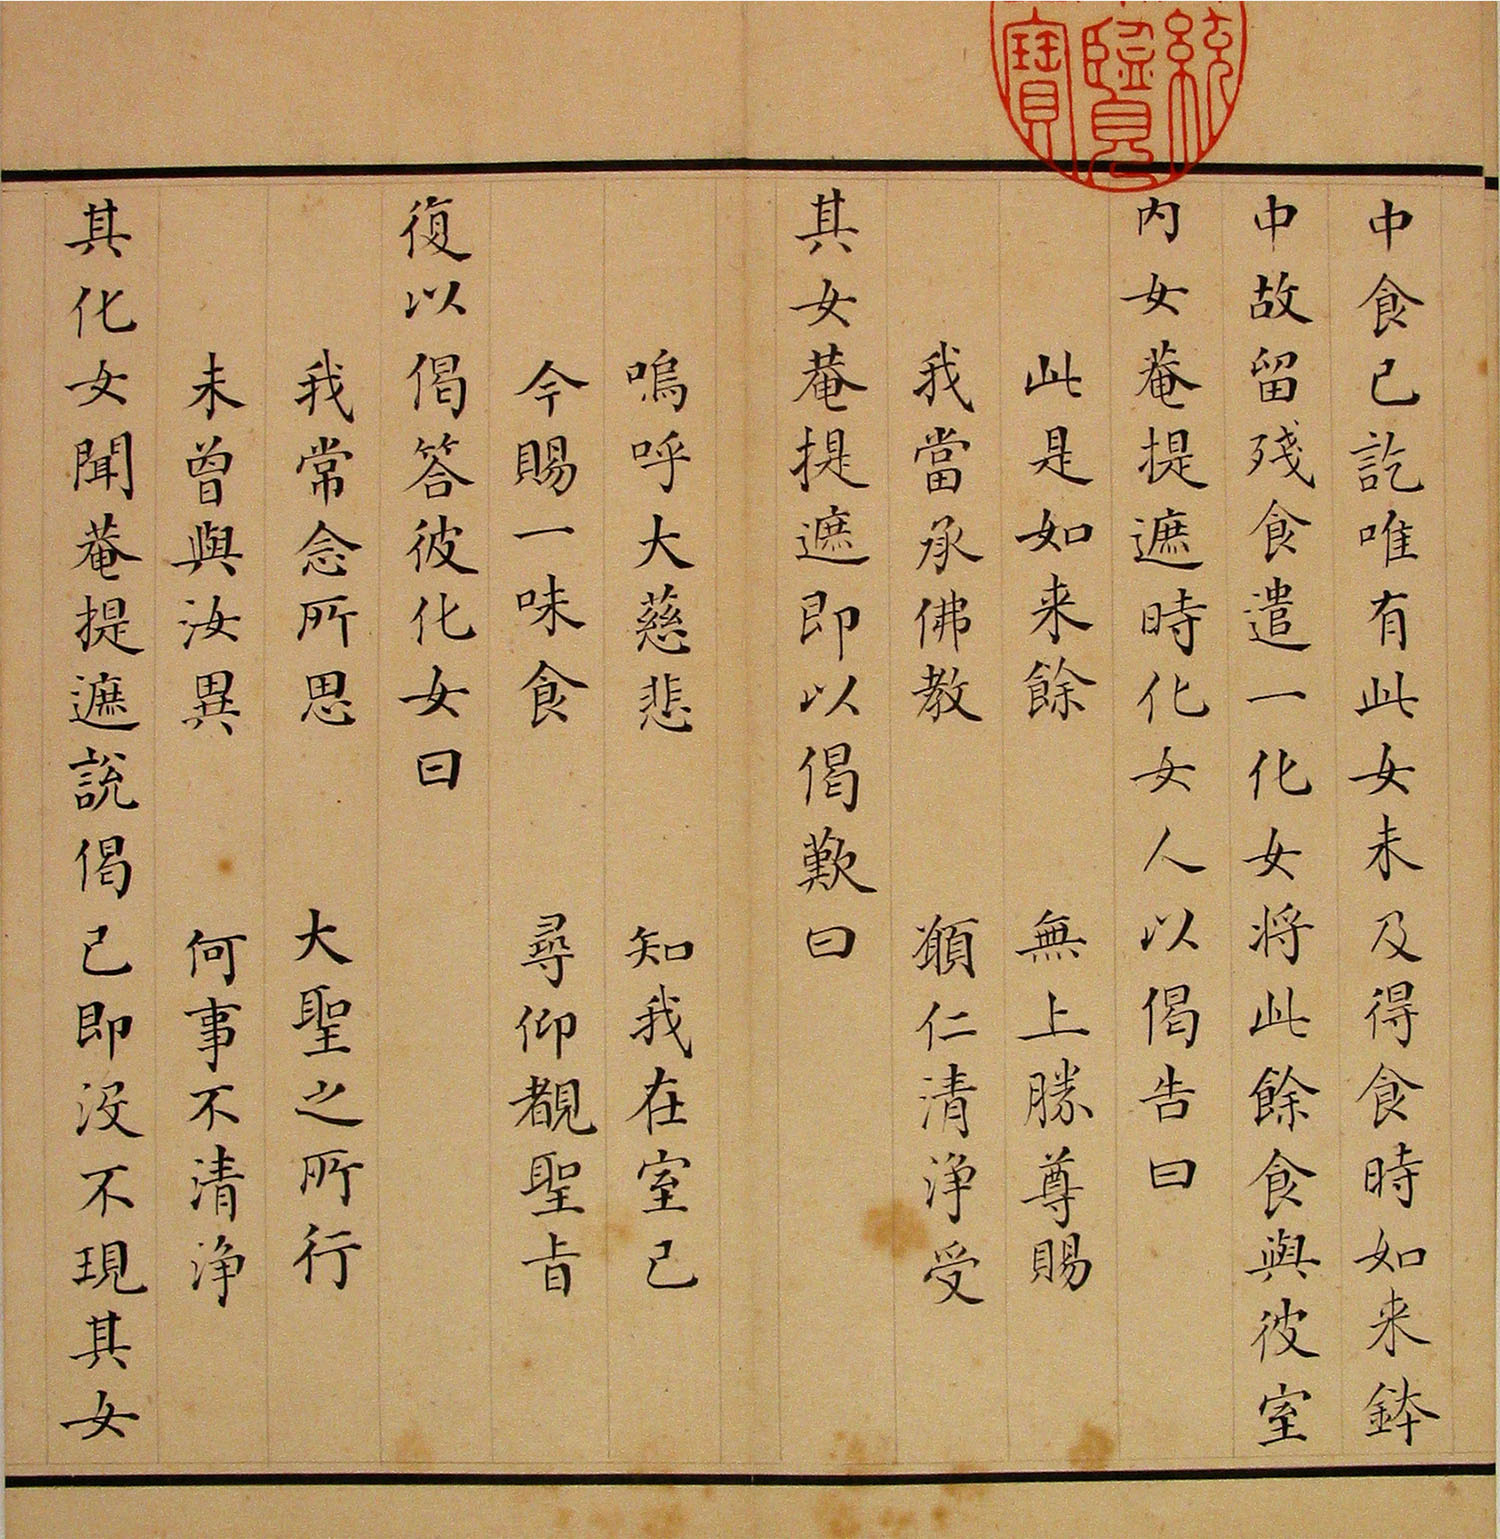 中食已訖唯有此女未及得食時如来鉢
中故留殘食遣一化女将此餘食與彼室
内女菴提遮時化女人以偈告曰
此是如来餘 無上勝尊賜
我當承佛教 願仁清浄受
其女菴提遮即以偈歎曰
嗚呼大慈悲 知我在室已
今賜一味食 尋仰覩聖旨
復以偈答彼化女曰
我常念所思 大聖之所行
未曾與汝異 何事不清浄
其化女聞菴提遮說偈已即没不現其女